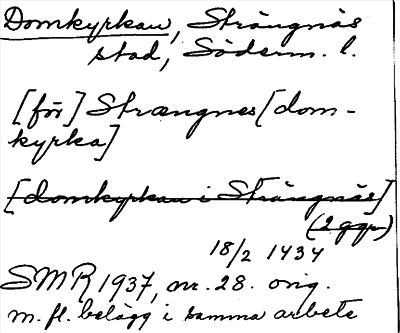 Domkyrkan, Strängnäs
stad, Söderm. l.
[för] Strængnes [dom-
kyrka]
[domkyrkan i Strängnäs]
(2 ggr)
18/2 1434
SMR 1937, nr. 28. orig.
m. fl. belägg i samma arbete